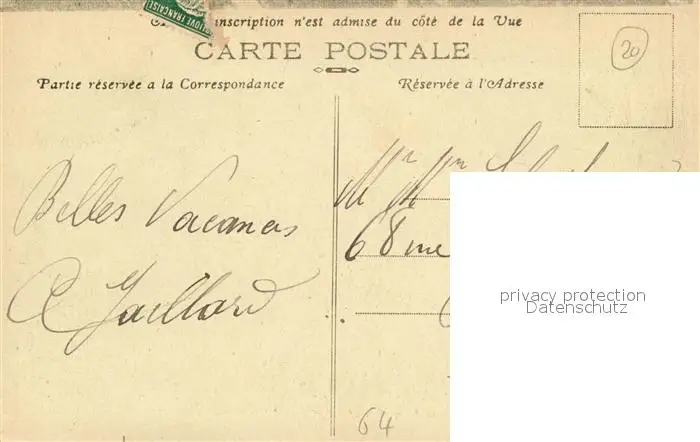 inscription n'est admise du côté de la Vue
CARTE POSTALE
Partie réservée a la Correspondance
Réservée à l'Adresse
20
Belles Vacances
Gaillard
Mr Mm
68 rue
privacy protection
Datenschutz
64